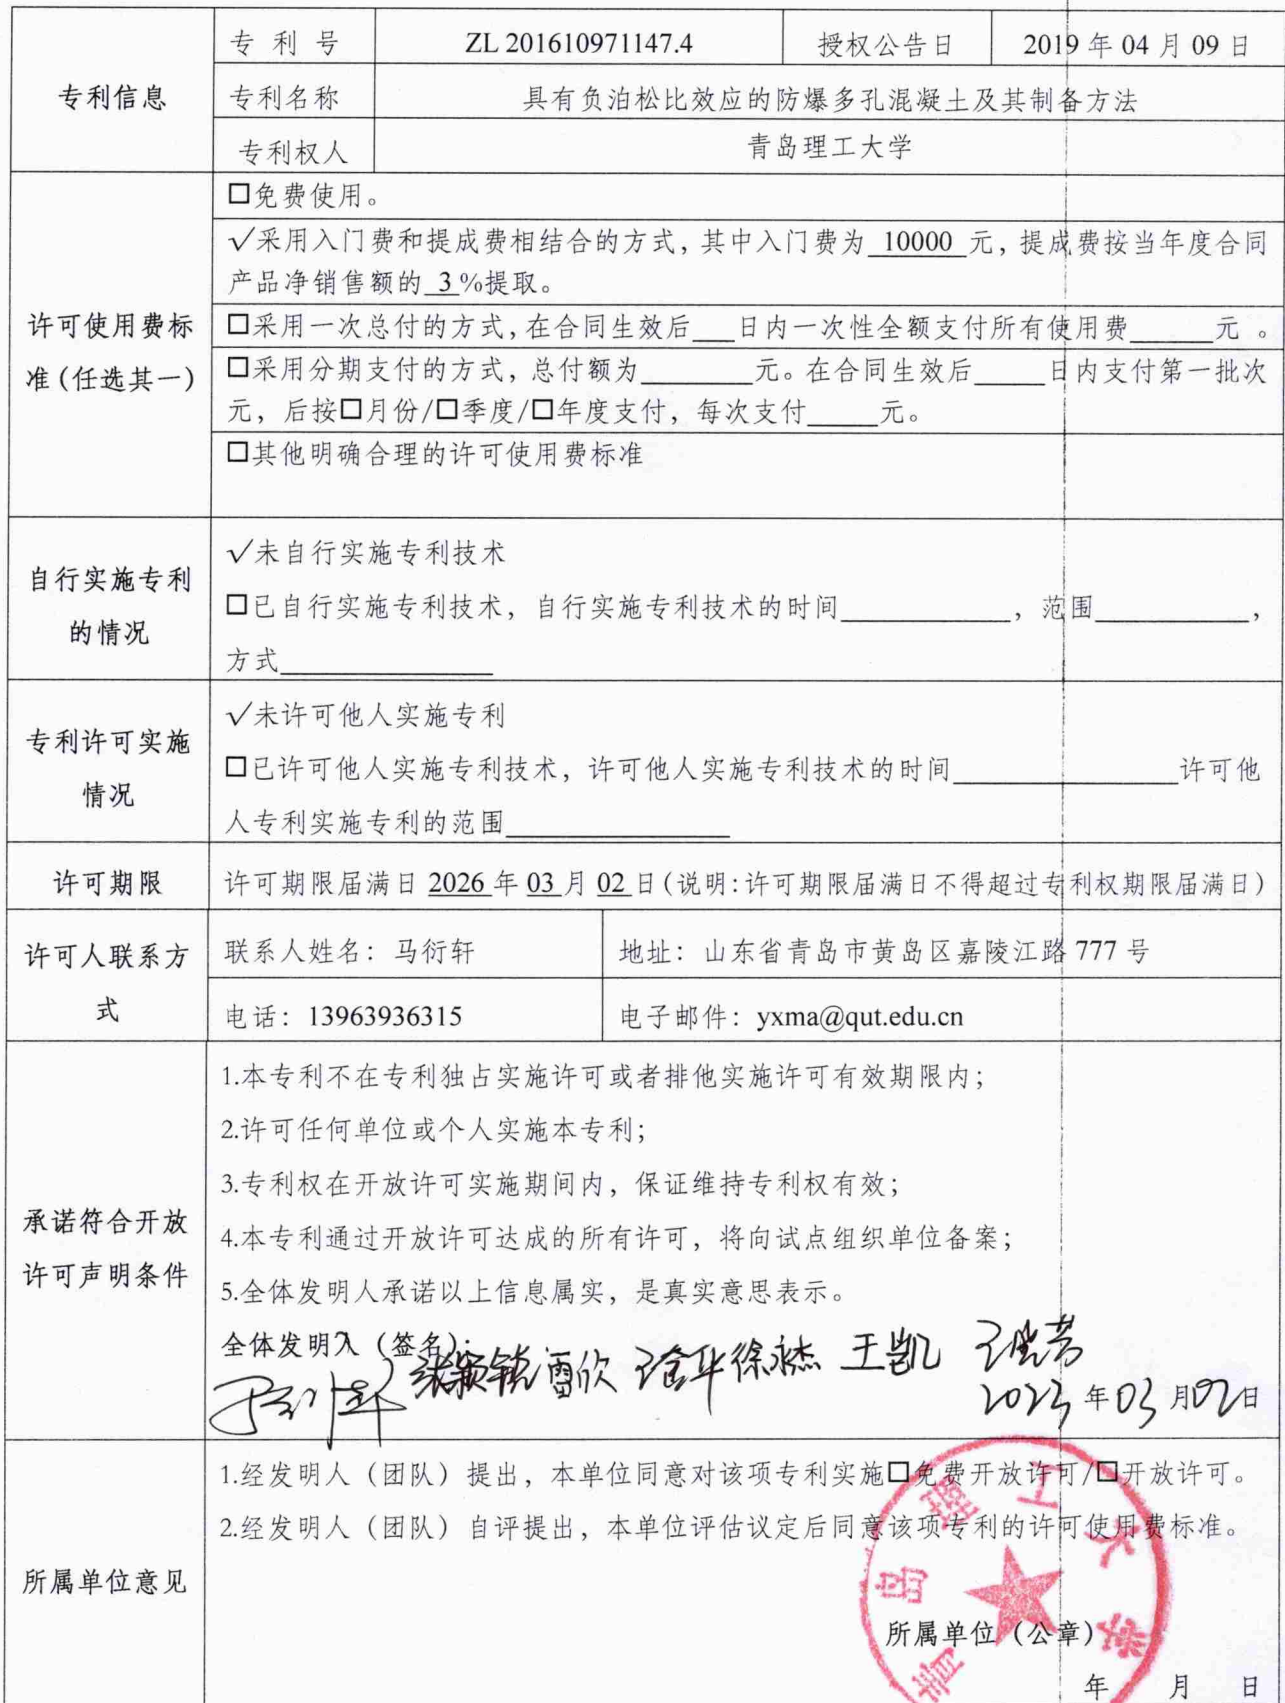 专利信息
专 利 号
ZL 201610971147.4
授权公告日
2019 年 04 月 09 日
专利名称
具有负泊松比效应的防爆多孔混凝土及其制备方法
专利权人
青岛理工大学
许可使用费标
准(任选其一)
□免费使用。
√采用入门费和提成费相结合的方式,其中入门费为 10000 元,提成费按当年度合同
产品净销售额的 3 %提取。
□采用一次总付的方式,在合同生效后___日内一次性全额支付所有使用费______元 。
□采用分期支付的方式,总付额为________元。在合同生效后_____日内支付第一批次
元,后按□月份/□季度/□年度支付,每次支付_____元。
□其他明确合理的许可使用费标准
自行实施专利
的情况
√未自行实施专利技术
□已自行实施专利技术,自行实施专利技术的时间____________,范围___________,
方式_______________
专利许可实施
情况
√未许可他人实施专利
□已许可他人实施专利技术,许可他人实施专利技术的时间________________许可他
人专利实施专利的范围________________
许可期限
许可期限届满日 2026 年 03 月 02 日(说明:许可期限届满日不得超过专利权期限届满日)
许可人联系方
式
联系人姓名:马衍轩
地址:山东省青岛市黄岛区嘉陵江路 777 号
电话:13963936315
电子邮件:yxma@qut.edu.cn
承诺符合开放
许可声明条件
1.本专利不在专利独占实施许可或者排他实施许可有效期限内;
2.许可任何单位或个人实施本专利;
3.专利权在开放许可实施期间内,保证维持专利权有效;
4.本专利通过开放许可达成的所有许可,将向试点组织单位备案;
5.全体发明人承诺以上信息属实,是真实意思表示。
全体发明人(签名):
雷欣 徐永杰 王凯
2023 年 03 月 02 日
所属单位意见
1.经发明人(团队)提出,本单位同意对该项专利实施□免费开放许可/□开放许可。
2.经发明人(团队)自评提出,本单位评估议定后同意该项专利的许可使用费标准。
青岛理工大学
所属单位(公章)
年 月 日